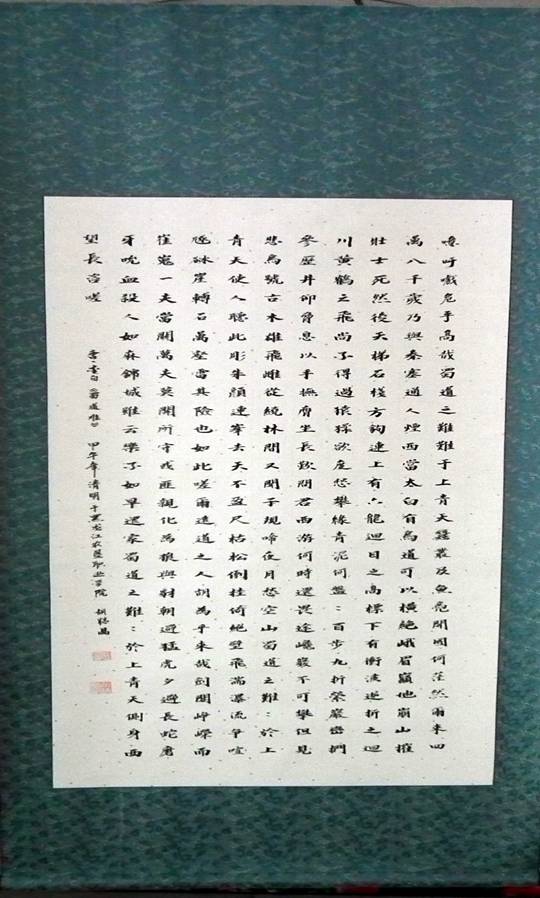 噫吁嚱危乎高哉蜀道之難難于上青天蠶叢及魚鳧開國何茫然爾來四
萬八千歲乃與秦塞通人煙西當太白有鳥道可以橫絕峨眉巔地崩山摧
壯士死然後天梯石棧方鉤連上有六龍迴日之高標下有衝波逆折之迴
川黃鶴之飛尚不得過猿猱欲度愁攀緣青泥何盤：百步九折縈巖巒捫
參歷井仰脅息以手撫膺坐長歎問君西游何時還畏途巉巖不可攀但見
悲鳥號古木雄飛雌從繞林間又聞子規啼夜月愁空山蜀道之難：於上
青天使人聽此彫朱顏連峯去天不盈尺枯松倒挂倚絕壁飛湍瀑流爭喧
豗砯崖轉石萬壑雷其險也如此嗟爾遠道之人胡為乎來哉劍閣崢嶸而
崔嵬一夫當關萬夫莫開所守或匪親化為狼與豺朝避猛虎夕避長蛇磨
牙吮血殺人如麻錦城雖云樂不如早還家蜀道之難：於上青天側身西
望長咨嗟
李白《蜀道難》 甲午年清明于黑龙江农垦职业学院